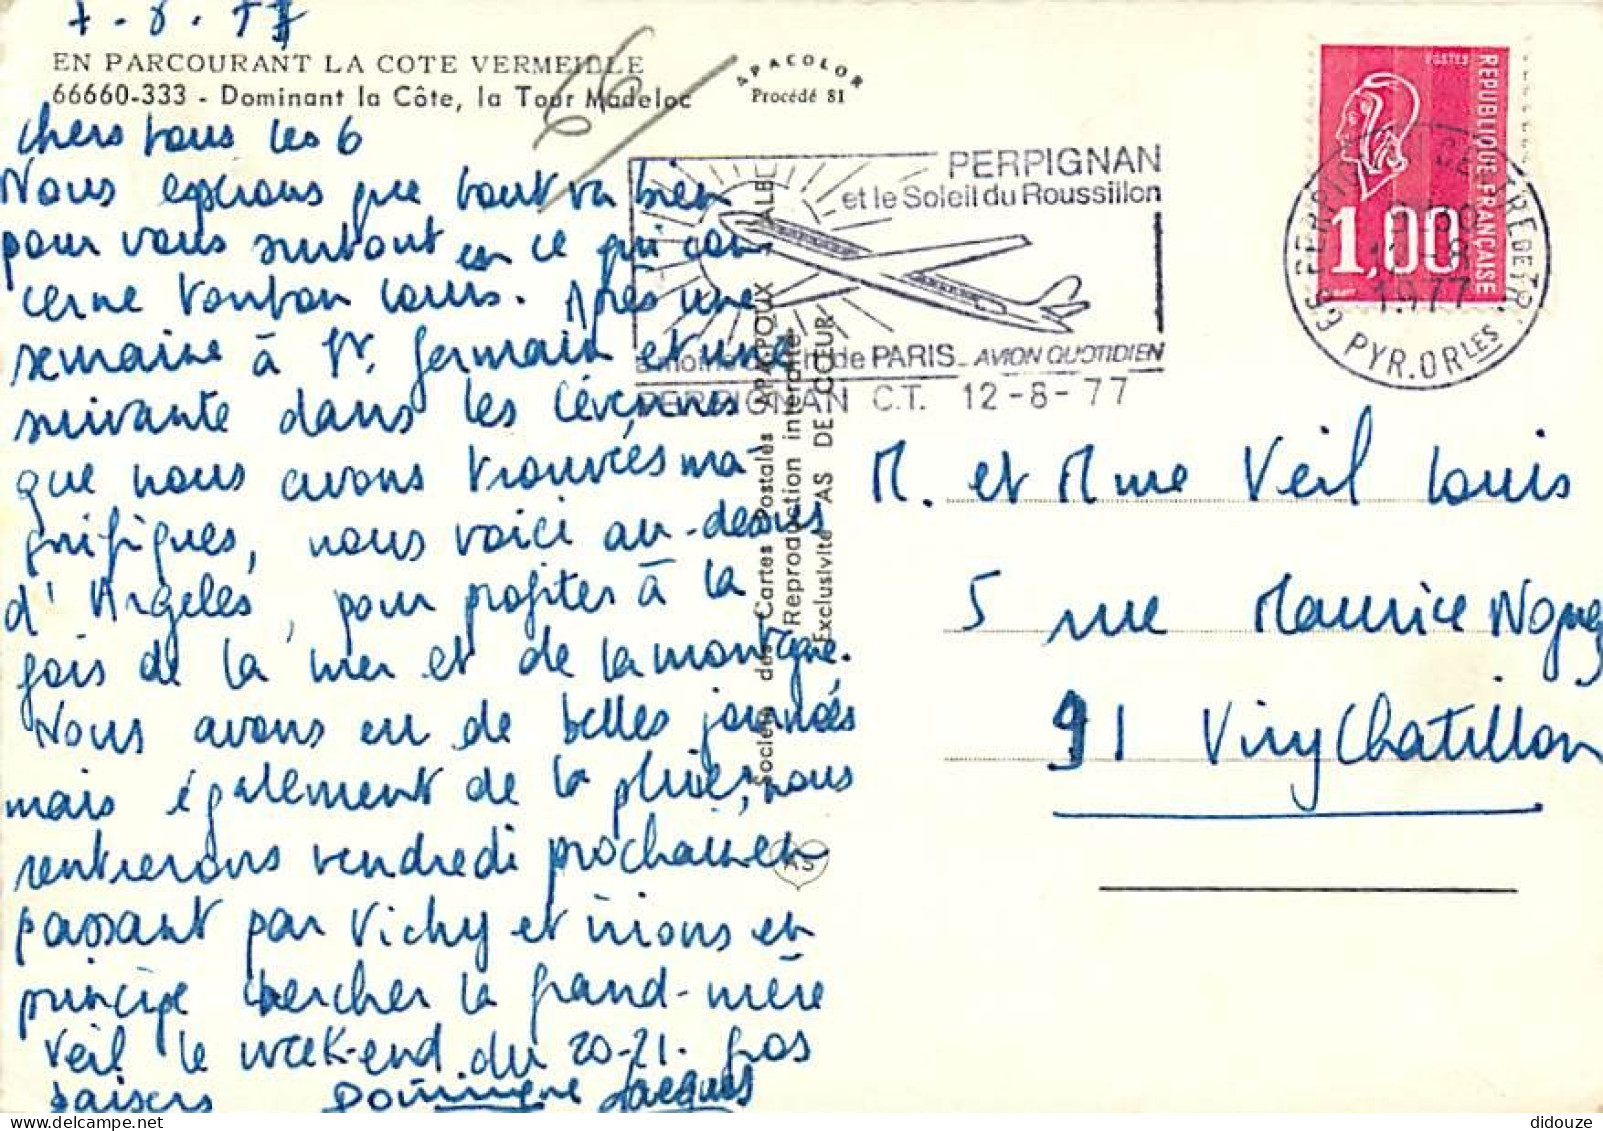 7-8-77
EN PARCOURANT LA COTE VERMEILLE
66660-333 - Dominant la Côte, la Tour Madeloc
APACOLOR
Procédé 81
66
Chers tous les 6
Nous espérons que tout va bien
pour vous surtout en ce qui con-
cerne Tonton Louis. Après une
semaine à St. Germain et une
suivante dans les Cévennes
que nous avons trouvées ma-
gnifiques, nous voici au-dessus
d'Argelès, pour profiter à la
fois de la mer et de la montagne.
Nous avons eu de belles journées
mais également de la pluie, nous
rentrerons vendredi prochain en
passant par Vichy et irions en
principe chercher la grand-mère
Veil le week-end du 20-21. Gros
baisers Dominique Jacques
Société des Cartes Postales APA-POUX ALBI
Reproduction interdite
Exclusivité AS DE CŒUR
AS
PERPIGNAN
et le Soleil du Roussillon
de PARIS - AVION QUOTIDIEN
PERPIGNAN C.T. 12-8-77
POSTES
REPUBLIQUE FRANÇAISE
1,00
66 PERPIGNAN CENTRE DE TRI
12-8
1977
PYR. ORLES
M. et Mme Veil Louis
5 rue Maurice Nogues
91 Viry Chatillon
didouze